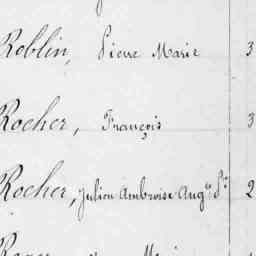 Roblin, Pierre Marie 3
Rocher, François 3
Rocher, Julien Ambroise Aug^te 2